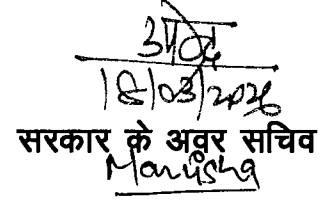 18/03/2026
सरकार के अवर सचिव
Manisha